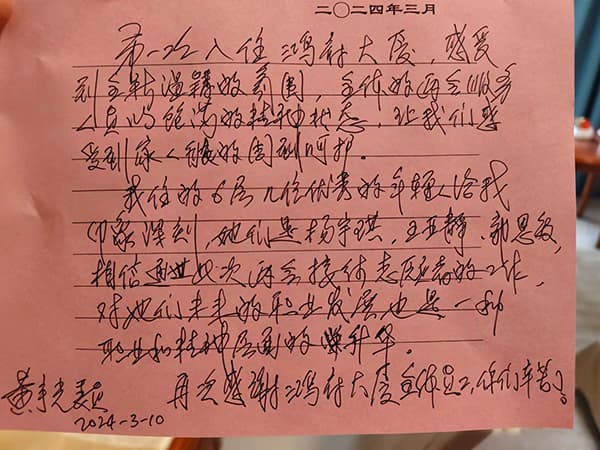 二〇二四年三月
第一次入住鸿府大厦,感受
到全新温馨的氛围,全体的两会服务
人员的饱满的精神状态,让我们感
受到家人般的周到呵护.
我住的6层几位优秀的年轻人给我
印象深刻,她们是杨宇琪、王亚静、郭思敏,
相信通过此次两会接待志愿者的工作,
对她们未来的职业发展也是一种
职业和精神层面的升华.
再次感谢鸿府大厦全体员工,你们辛苦了。
2024-3-10